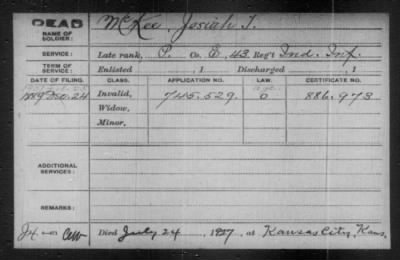 DEAD
NAME OF SOLDIER: McKee, Josiah T.
SERVICE: Late rank, P. Co. E, 43 Reg't Ind. Inf.
TERM OF SERVICE: Enlisted , 1 Discharged , 1
DATE OF FILING. CLASS. APPLICATION NO. LAW. CERTIFICATE NO.
1889 Dec. 24 Invalid, 745.529 O 886.973
Widow,
Minor,
ADDITIONAL SERVICES:
REMARKS:
Died July 24, 1927, at Kansas City, Kans.